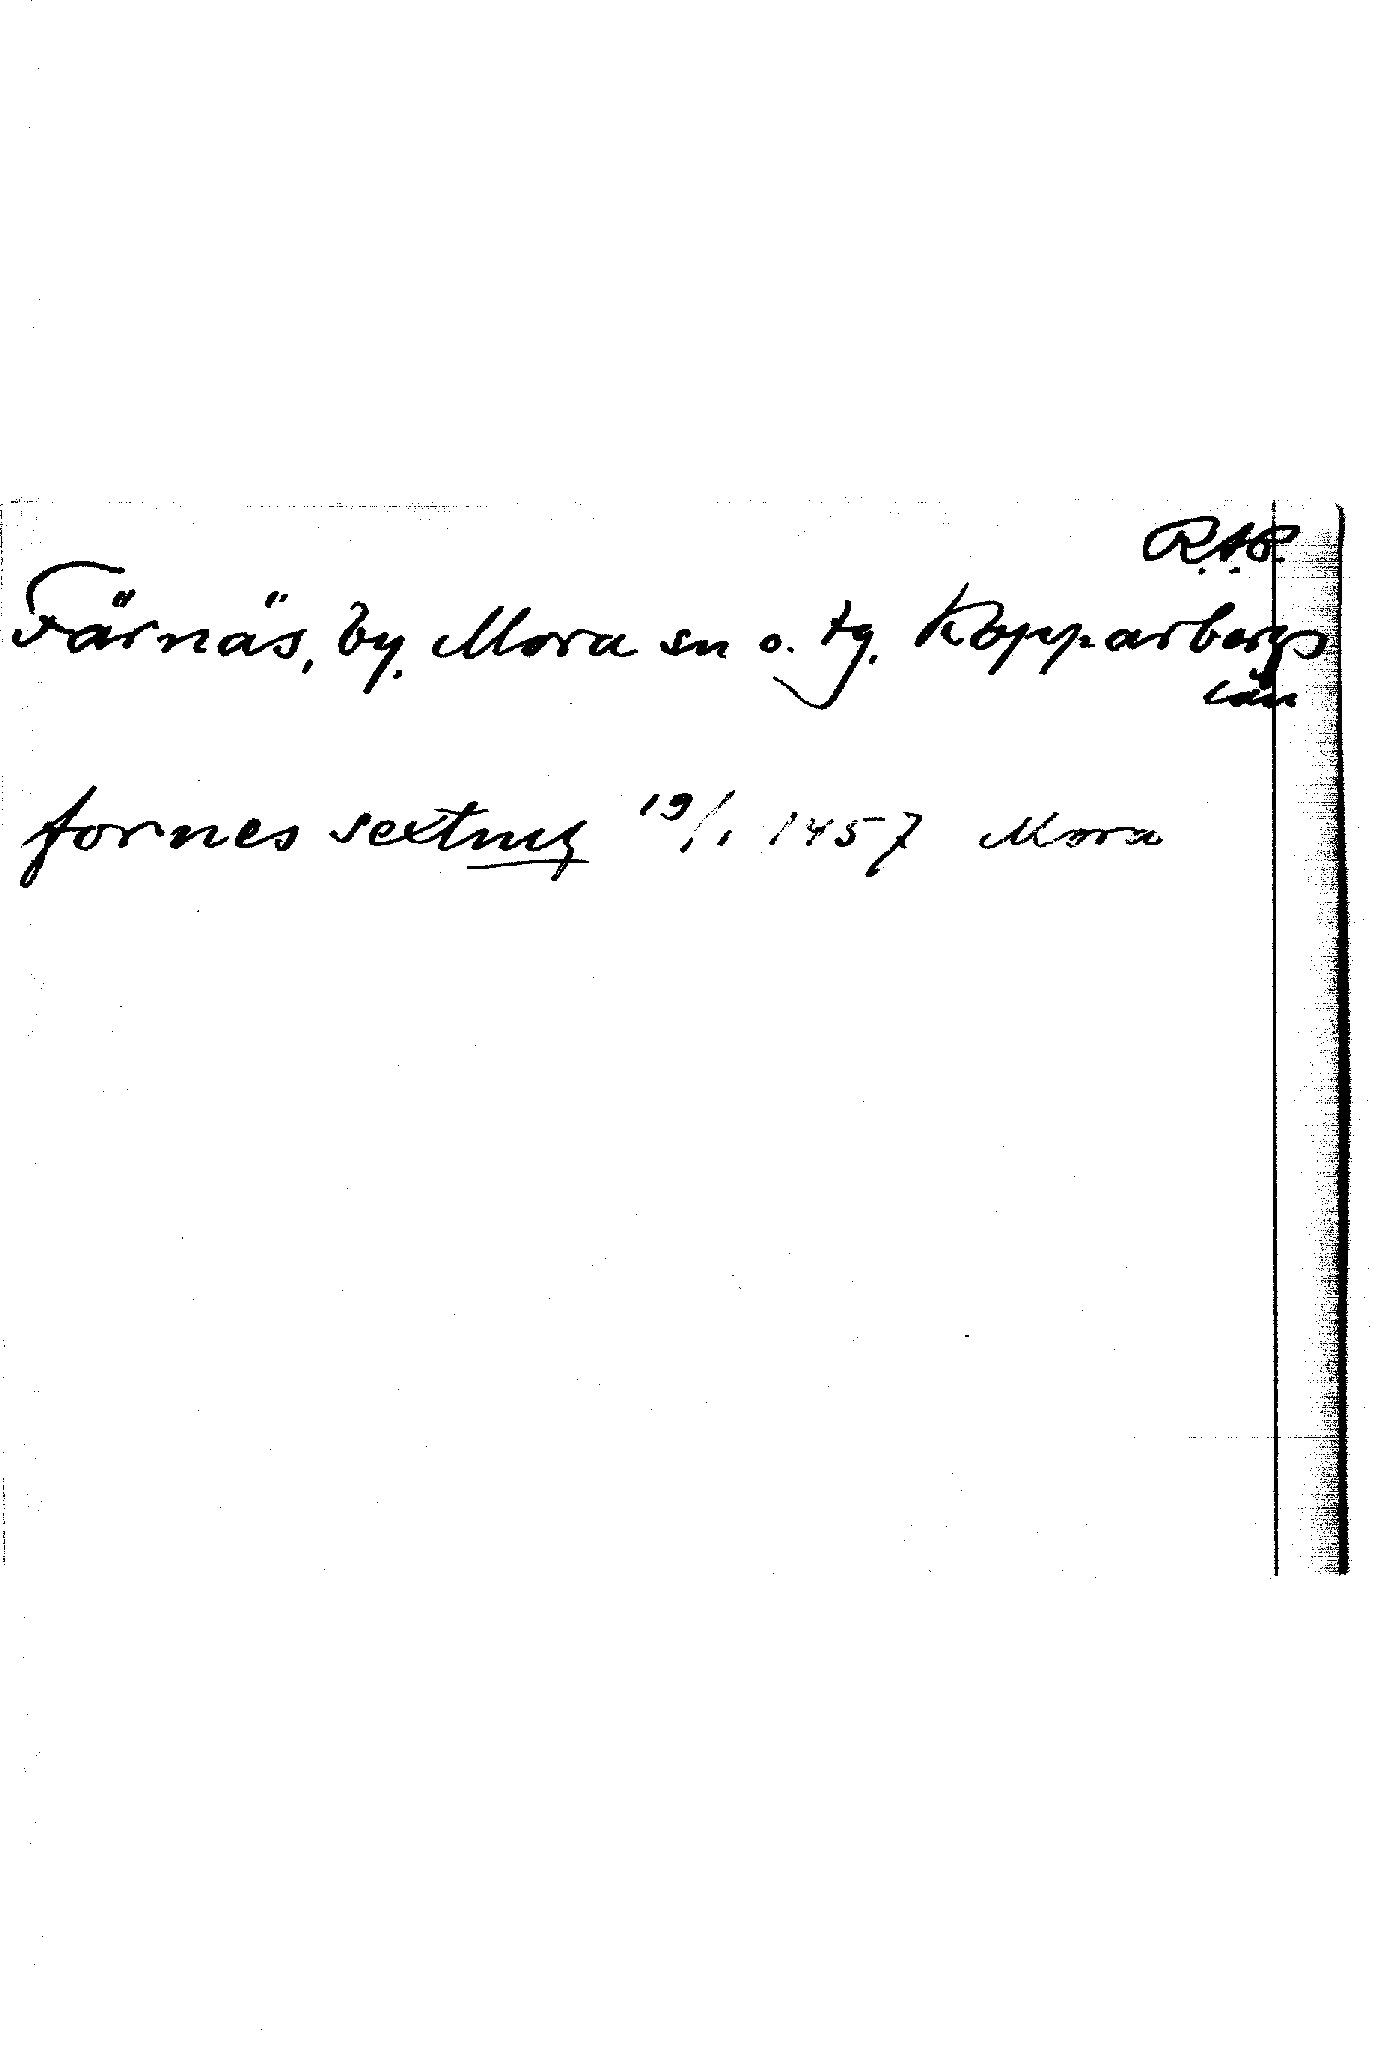 R.A.P.
Färnäs, by. Mora sn o. tg. Kopparbergs
län
fornes sextung 19/1 1457 Mora